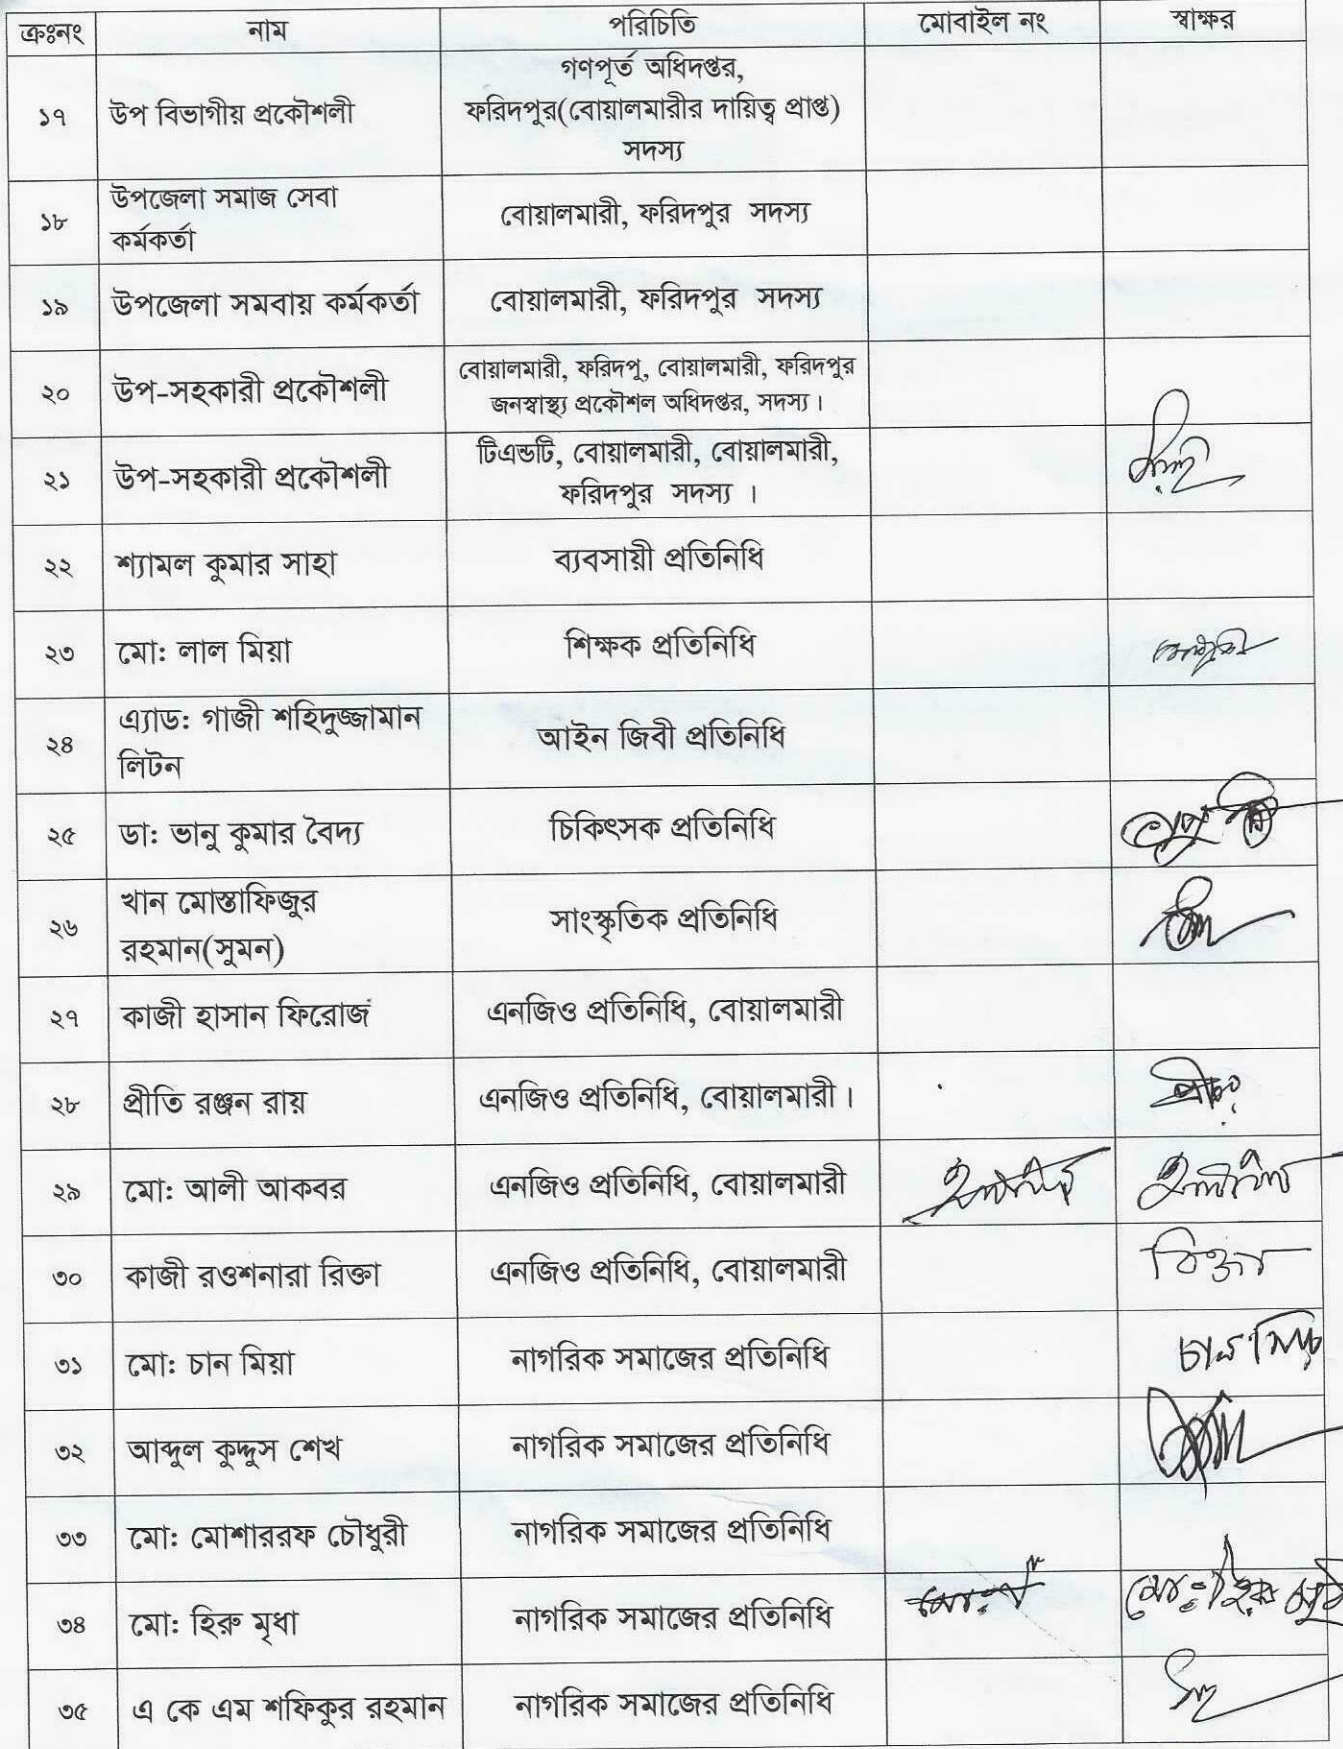 ক্রঃনং নাম পরিচিতি মোবাইল নং স্বাক্ষর
গণপূর্ত অধিদপ্তর,
১৭ উপ বিভাগীয় প্রকৌশলী ফরিদপুর(বোয়ালমারীর দায়িত্ব প্রাপ্ত)
সদস্য
উপজেলা সমাজ সেবা
১৮ বোয়ালমারী, ফরিদপুর সদস্য
কর্মকর্তা
১৯ উপজেলা সমবায় কর্মকর্তা বোয়ালমারী, ফরিদপুর সদস্য
বোয়ালমারী, ফরিদপু, বোয়ালমারী, ফরিদপুর
২০ উপ-সহকারী প্রকৌশলী
জনস্বাস্থ্য প্রকৌশল অধিদপ্তর, সদস্য।
টিএন্ডটি, বোয়ালমারী, বোয়ালমারী,
২১ উপ-সহকারী প্রকৌশলী
ফরিদপুর সদস্য ।
২২ শ্যামল কুমার সাহা ব্যবসায়ী প্রতিনিধি
২৩ মো: লাল মিয়া শিক্ষক প্রতিনিধি
এ্যাড: গাজী শহিদুজ্জামান
২৪ আইন জিবী প্রতিনিধি
লিটন
২৫ ডা: ভানু কুমার বৈদ্য চিকিৎসক প্রতিনিধি
খান মোস্তাফিজুর
২৬ সাংস্কৃতিক প্রতিনিধি
রহমান(সুমন)
২৭ কাজী হাসান ফিরোজ এনজিও প্রতিনিধি, বোয়ালমারী
২৮ প্রীতি রঞ্জন রায় এনজিও প্রতিনিধি, বোয়ালমারী।
২৯ মো: আলী আকবর এনজিও প্রতিনিধি, বোয়ালমারী
৩০ কাজী রওশনারা রিক্তা এনজিও প্রতিনিধি, বোয়ালমারী রিক্তা
৩১ মো: চান মিয়া নাগরিক সমাজের প্রতিনিধি চান মিয়া
৩২ আব্দুল কুদ্দুস শেখ নাগরিক সমাজের প্রতিনিধি
৩৩ মো: মোশাররফ চৌধুরী নাগরিক সমাজের প্রতিনিধি
৩৪ মো: হিরু মৃধা নাগরিক সমাজের প্রতিনিধি মোঃ হিরু মৃধা
৩৫ এ কে এম শফিকুর রহমান নাগরিক সমাজের প্রতিনিধি